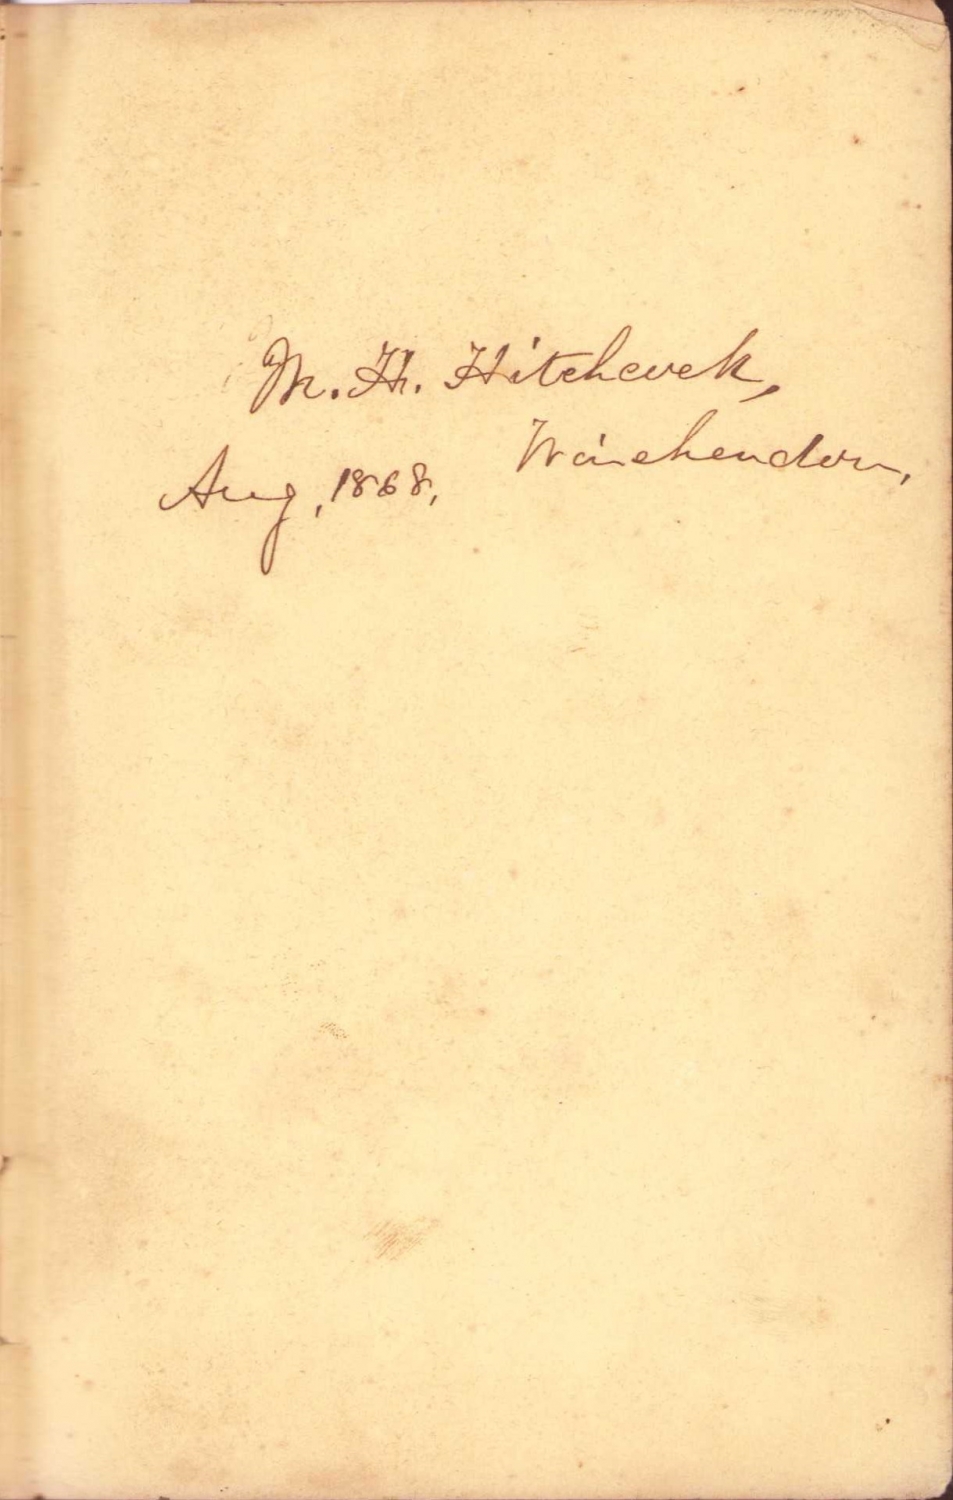 M. H. Hitchcock,
Winchendon,
Aug, 1868,